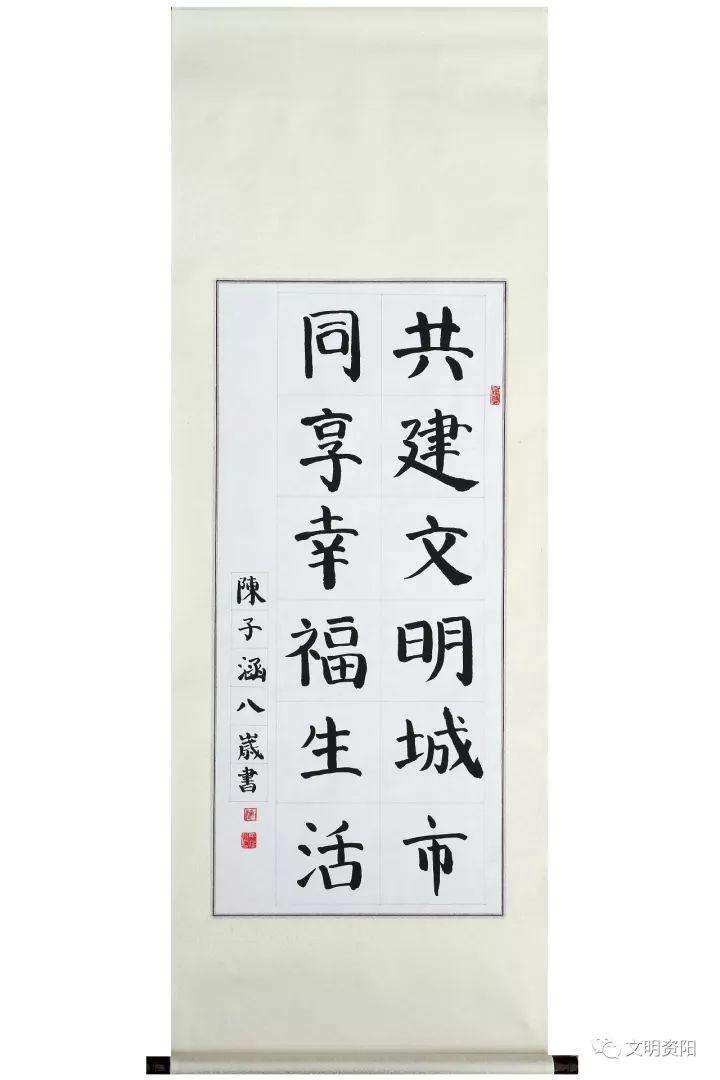 共建文明城市
同享幸福生活
陳子涵八歲書
文明资阳